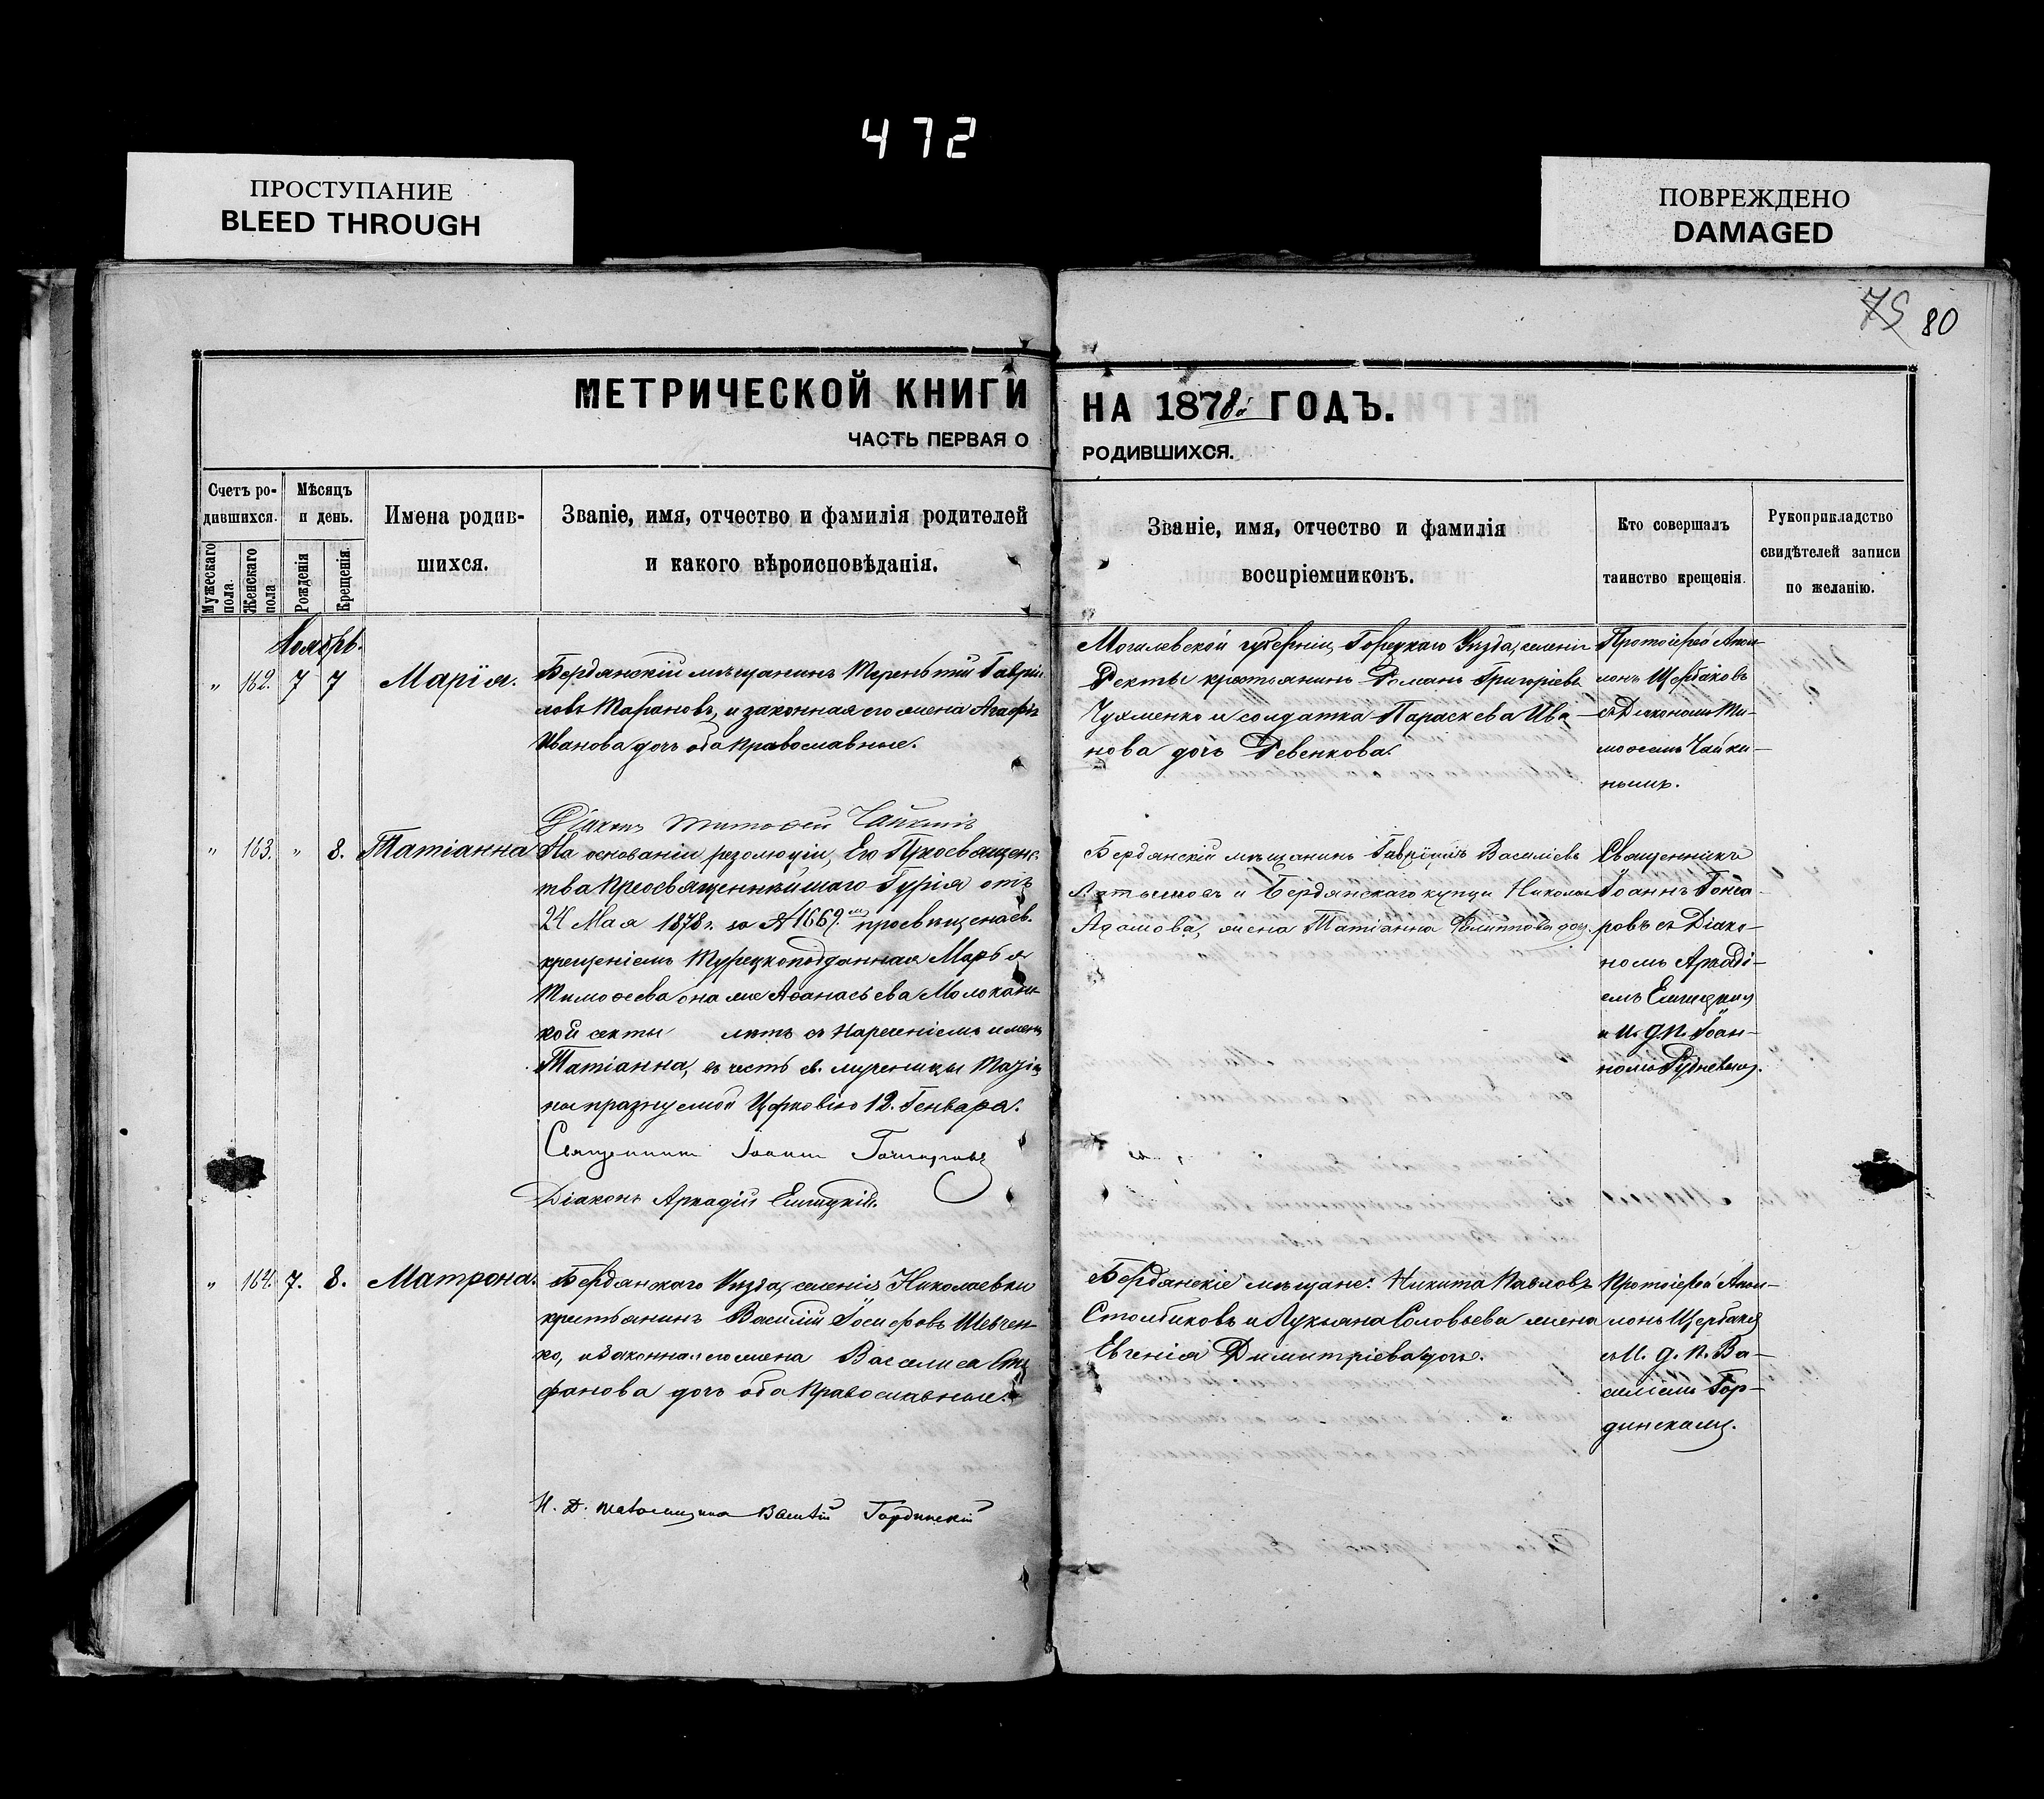 472
ПРОСТУПАНИЕ
BLEED THROUGH
ПОВРЕЖДЕНО
DAMAGED
75 80
МЕТРИЧЕСКОЙ КНИГИ НА 1878й ГОДЪ.
ЧАСТЬ ПЕРВАЯ О РОДИВШИХСЯ.
Счетъ ро-
дившихся.
Мужескаго пола
Женскаго пола
Мѣсяцъ
и день.
Рожденія
Крещенія.
Имена родив-
шихся.
Званіе, имя, отчество и фамилія родителей
и какого вѣроисповѣданія.
Званіе, имя, отчество и фамилія
воспріемниковъ.
Кто совершалъ
таинство крещенія.
Рукоприкладство
свидѣтелей записи
по желанію.
Ноябрь.
" 162. 7 7 Марія.
Бердянскій мѣщанинъ Терентій Гаврі-
ловъ Тарановъ, и законная его жена Агафія
Иванова дочь оба православные.
Могилевской губерніи, Горецкаго Уѣзда, селенія
крестьянинъ Романъ Григоріевъ
Чухменко и солдатка Параскева Ива-
нова дочь Ревенкова.
Протоіерей Апол-
лонъ Щербаковъ
съ Діакономъ Ти-
моѳеемъ Чайки-
нымъ.
Діаконъ Тимоѳей Чайкинъ
" 163. " 8. Татіанна
На основаніи резолюціи, Его Преосвященс-
тва Преосвященнѣйшаго Гурія отъ
24 Мая 1878 г. за № 1669. просвѣщена св.
крещеніемъ Турецкоподданная Марья
Тимоѳеева она же Аѳанасьева Молоканс-
кой секты лѣтъ съ нареченіемъ имени
Татіанна, въ честь св. мученицы Татіа-
ны празнуемой Церковію 12. Генваря.
Священникъ Іоаннъ Гончаровъ
Діаконъ Аркадій
Бердянскій мѣщанинъ Гавріилъ Василіевъ
и Бердянскаго купца Николая
Адамова, жена Татіанна Филиппова доч.
Священникъ
Іоаннъ Гонча-
ровъ съ Діако-
номъ Аркаді-
емъ
и И. д. п. Іоан-
номъ Рудневымъ.
" 164. 7. 8. Матрона.
Бердянскаго Уѣзда, селенія Николаевки
крестьянинъ Василій Іосифовъ Шевчен-
ко, и законная его жена Васслиса Сте-
фанова дочь оба православные.
Бердянскіе мѣщане: Никита Павловъ
Столбиковъ и Лукьяна Соловьева жена
Евгенія Димитріева дочь.
Протоіерей Апол-
лонъ Щербаковъ
съ И. д. п. Ва-
силіемъ Гор-
динскимъ.
И. д. псаломщика Василій Гординскій